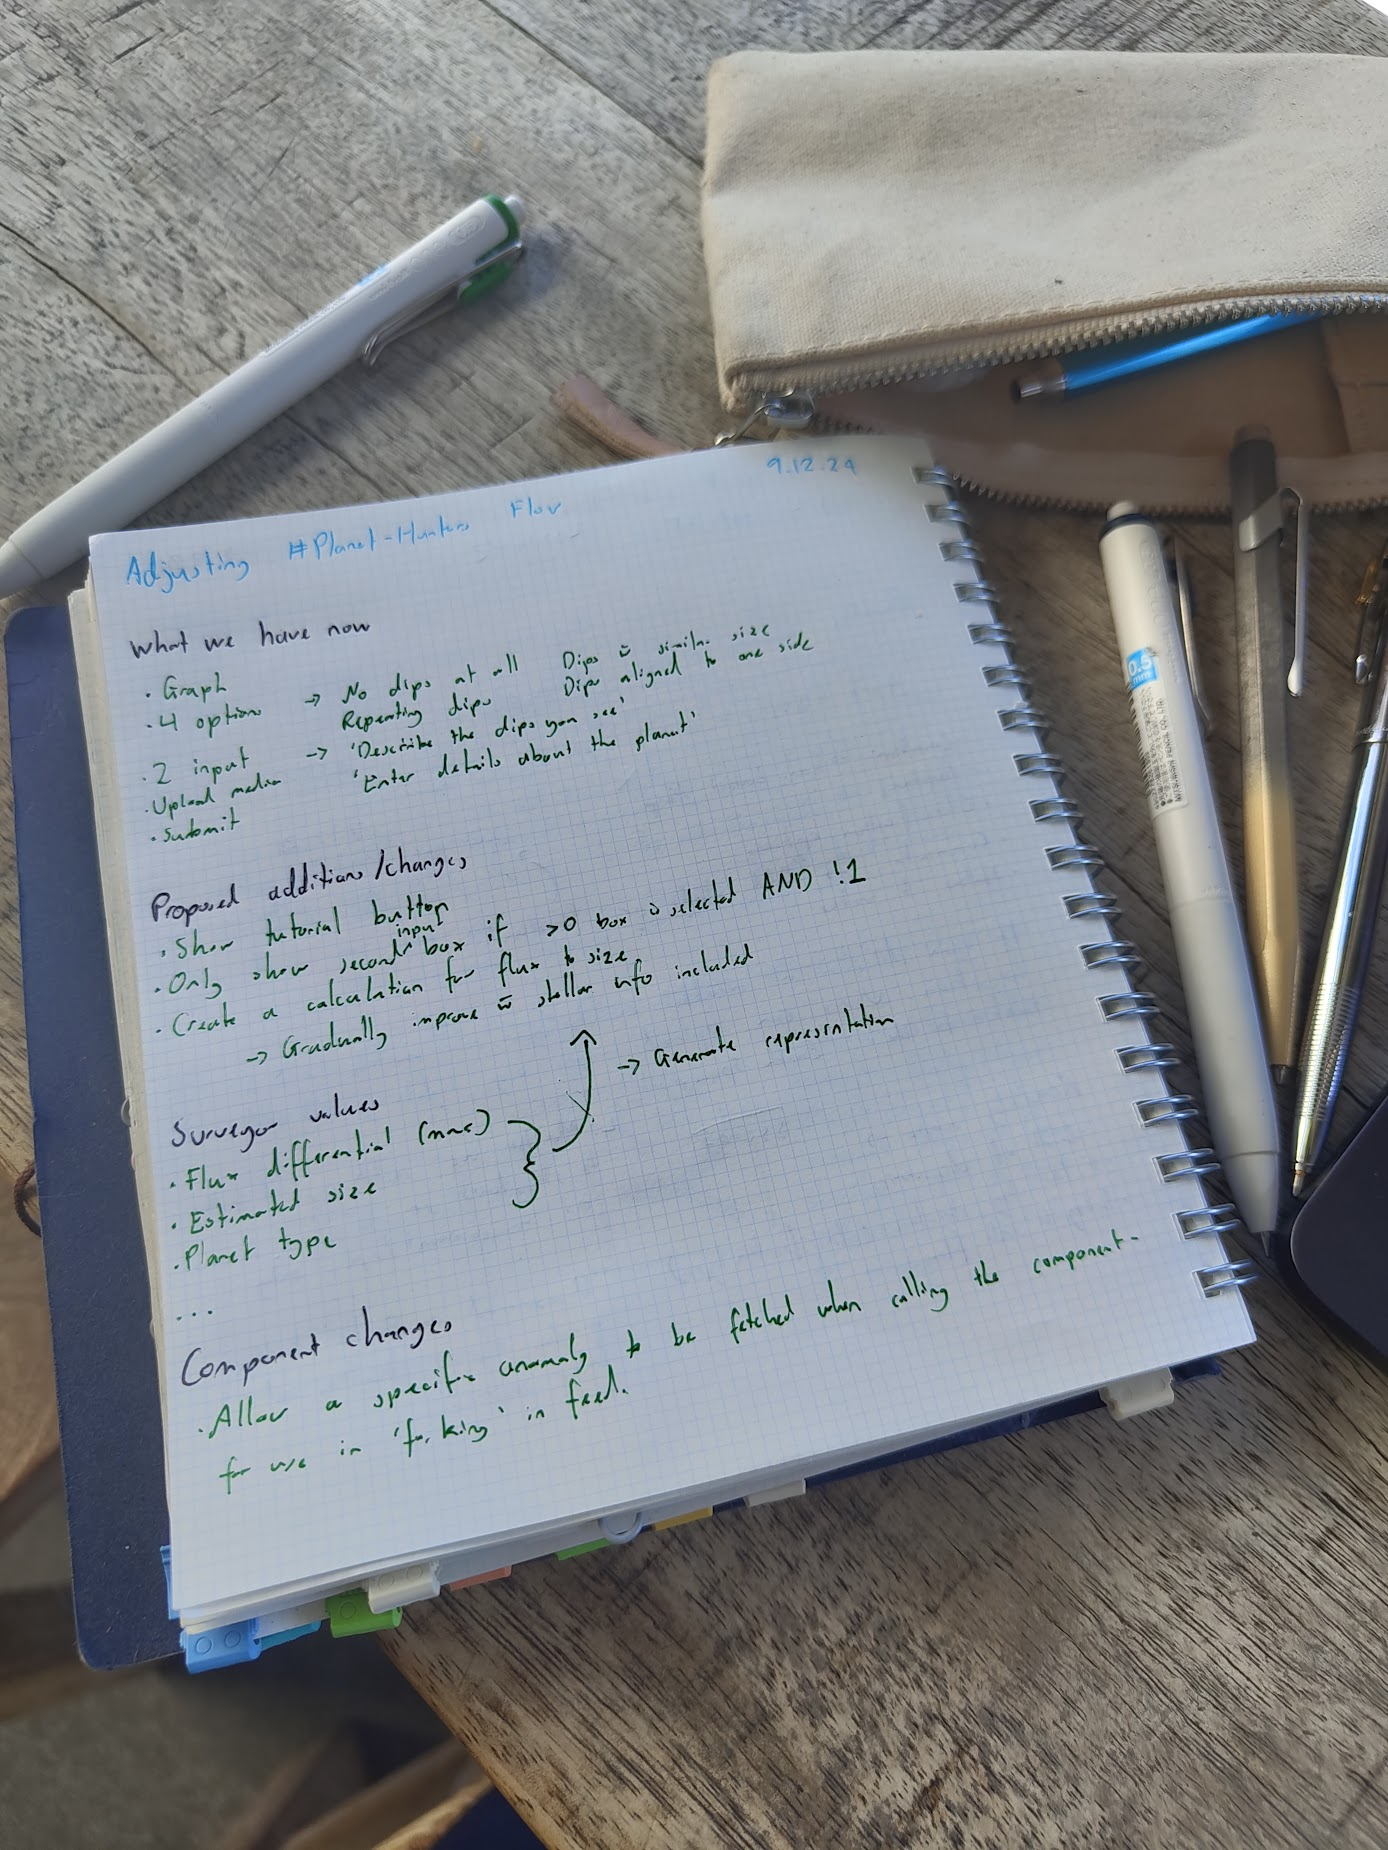 9.12.24
Adjusting #Planet-Hunters Flow
What we have now
· Graph
· 4 options → No dips at all Dips w̄ similar size
Repeating dips Dips aligned to one side
· 2 input → 'Describe the dips you see'
'Enter details about the planet'
· Upload media
· Submit
Proposed additions/changes
· Show tutorial button
· Only show second input box if >0 box is selected AND !1
· Create a calculation for flux to size
→ Gradually improve w̄ stellar info included
→ Generate representation
Surveyor values
· Flux differential
· Estimated size
· Planet type
...
Component changes
· Allow a specific anomaly to be fetched when calling the component -
for use in 'forking' in feed.
0.5
mm